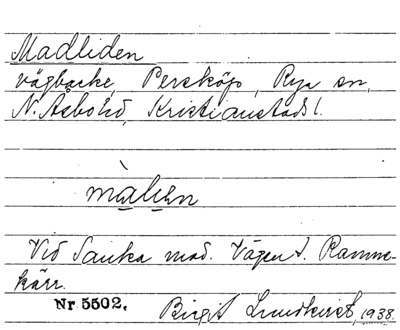 Madliden
vägbacke, Persköp, Rya sn,
N. Åsbo hd, Kristianstads l.
Vid Sanka mad. Vägen t. Ramme-
kärr.
Nr 5502. Birgit Lundkvist, 1938.